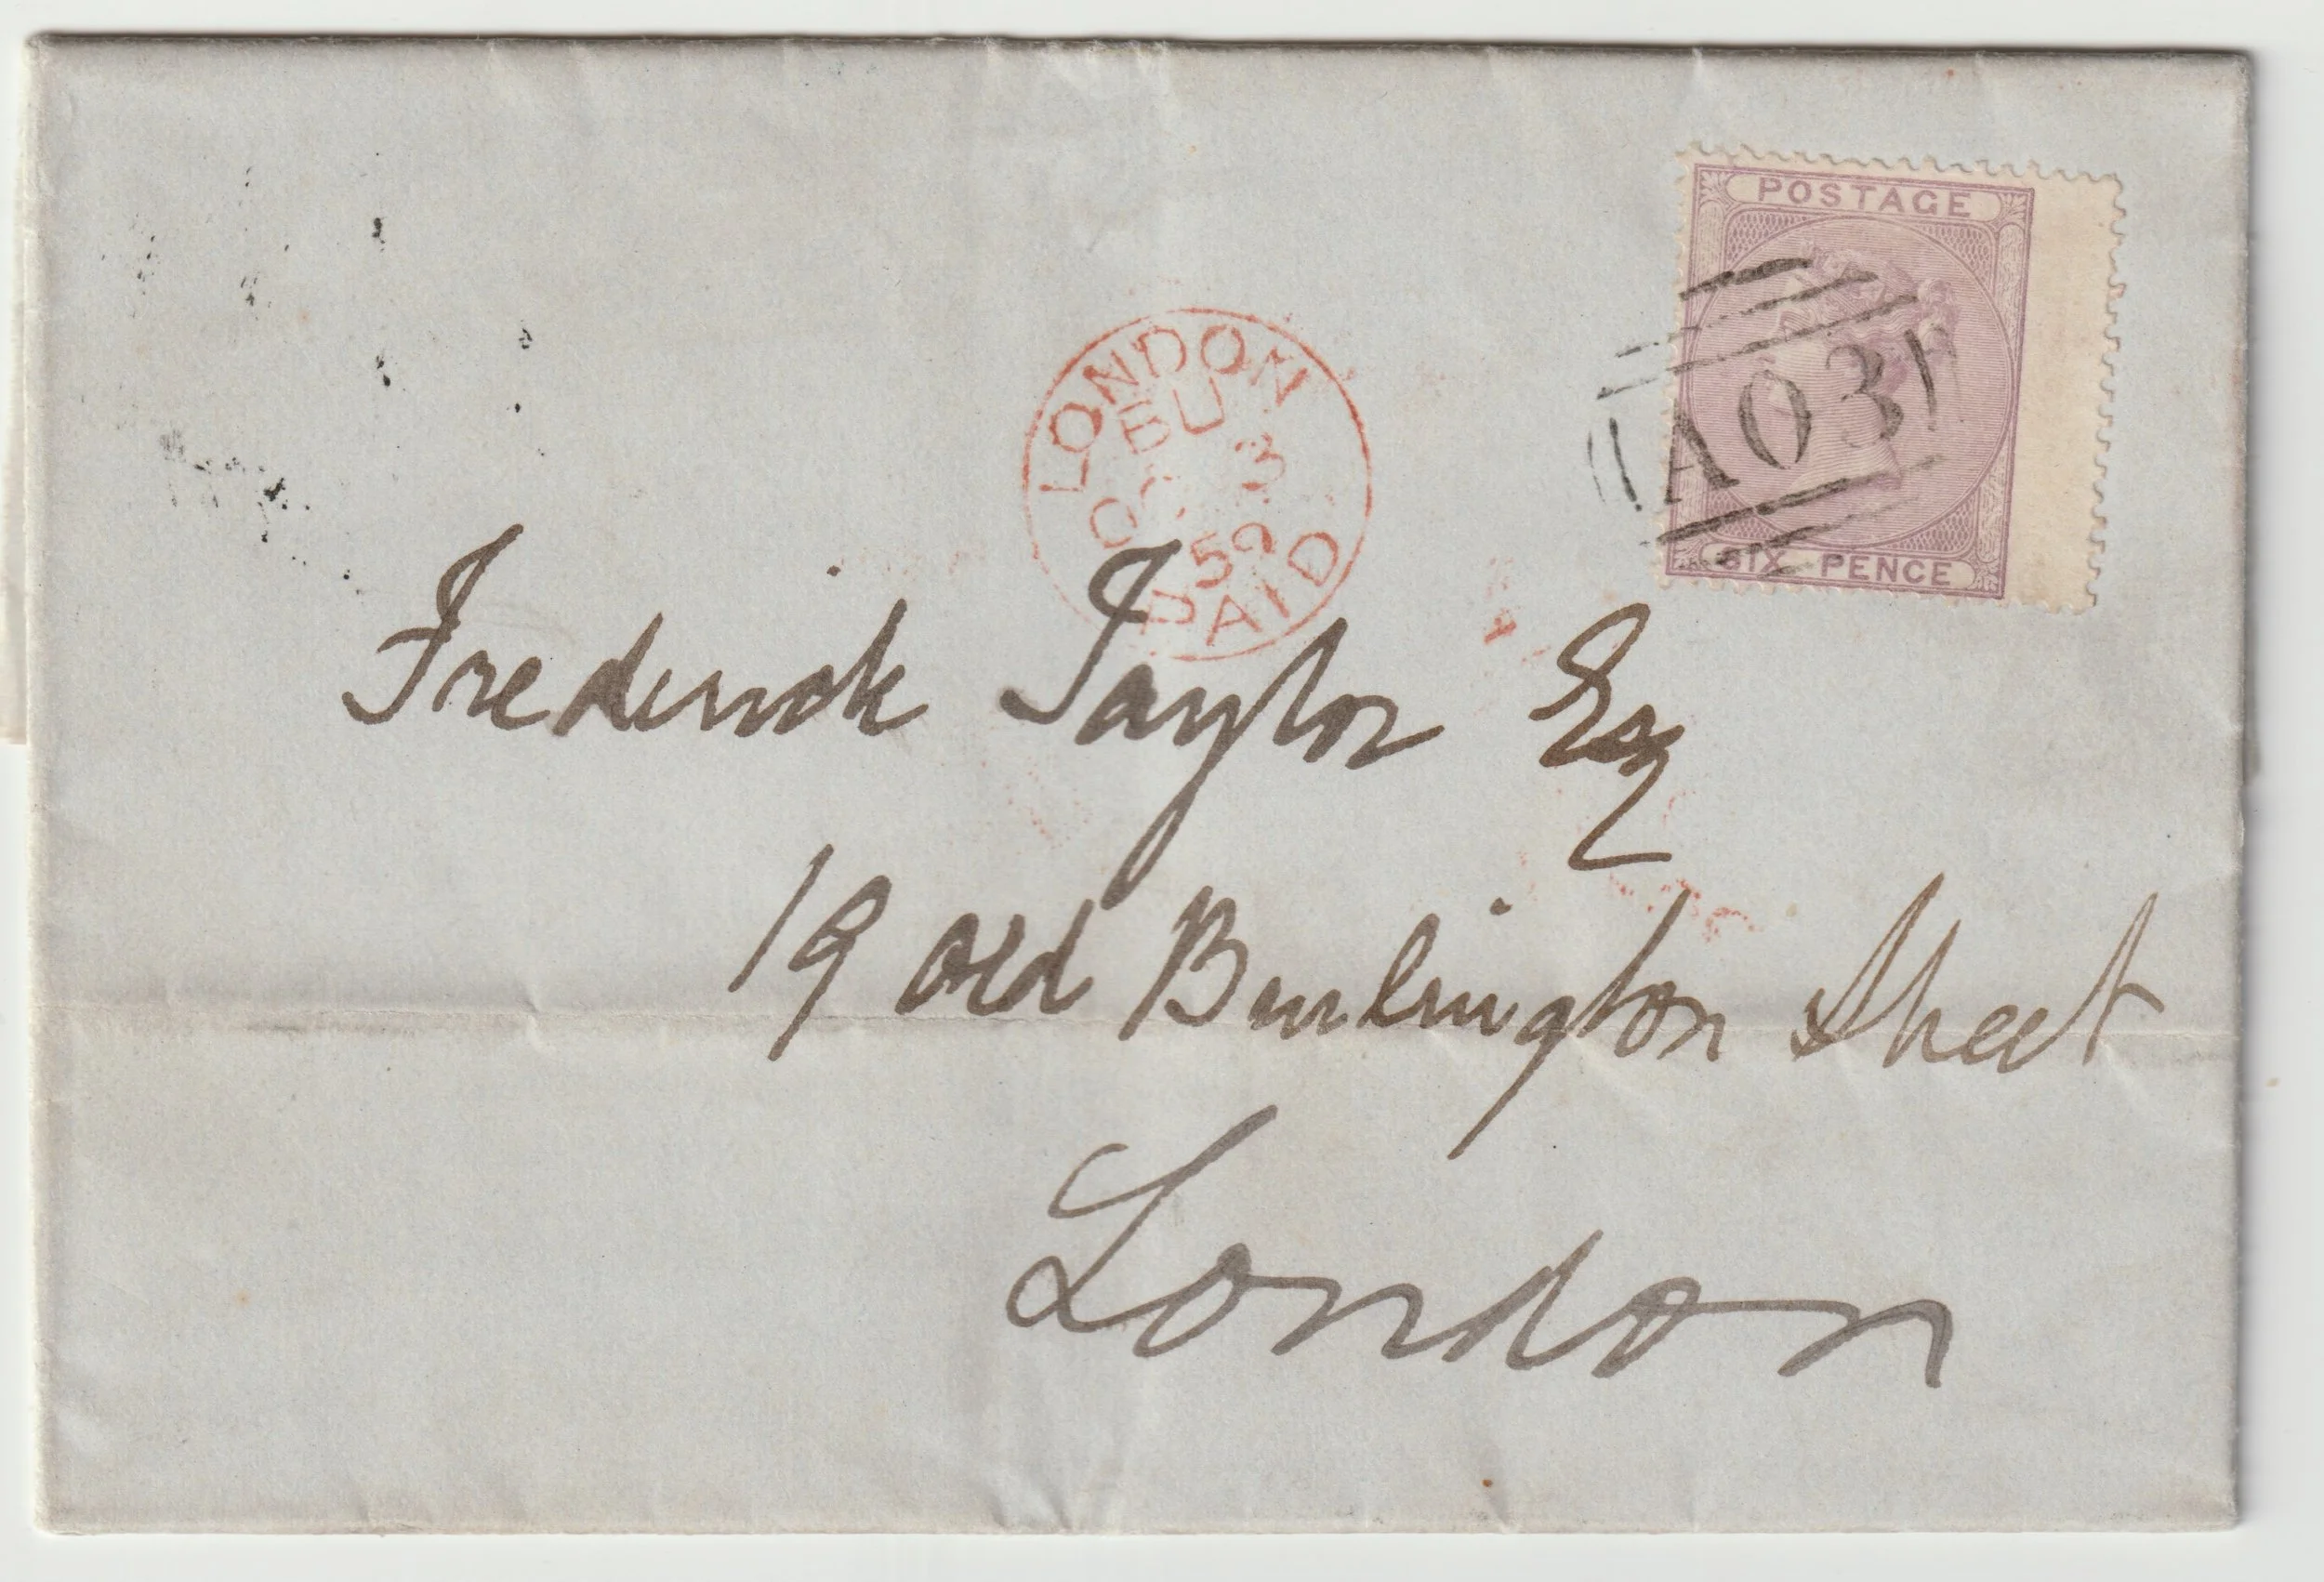 POSTAGE
A03
SIX PENCE
LONDON
BU
3
59
PAID
Frederick Taylor Esq
19 Old Burlington Street
London